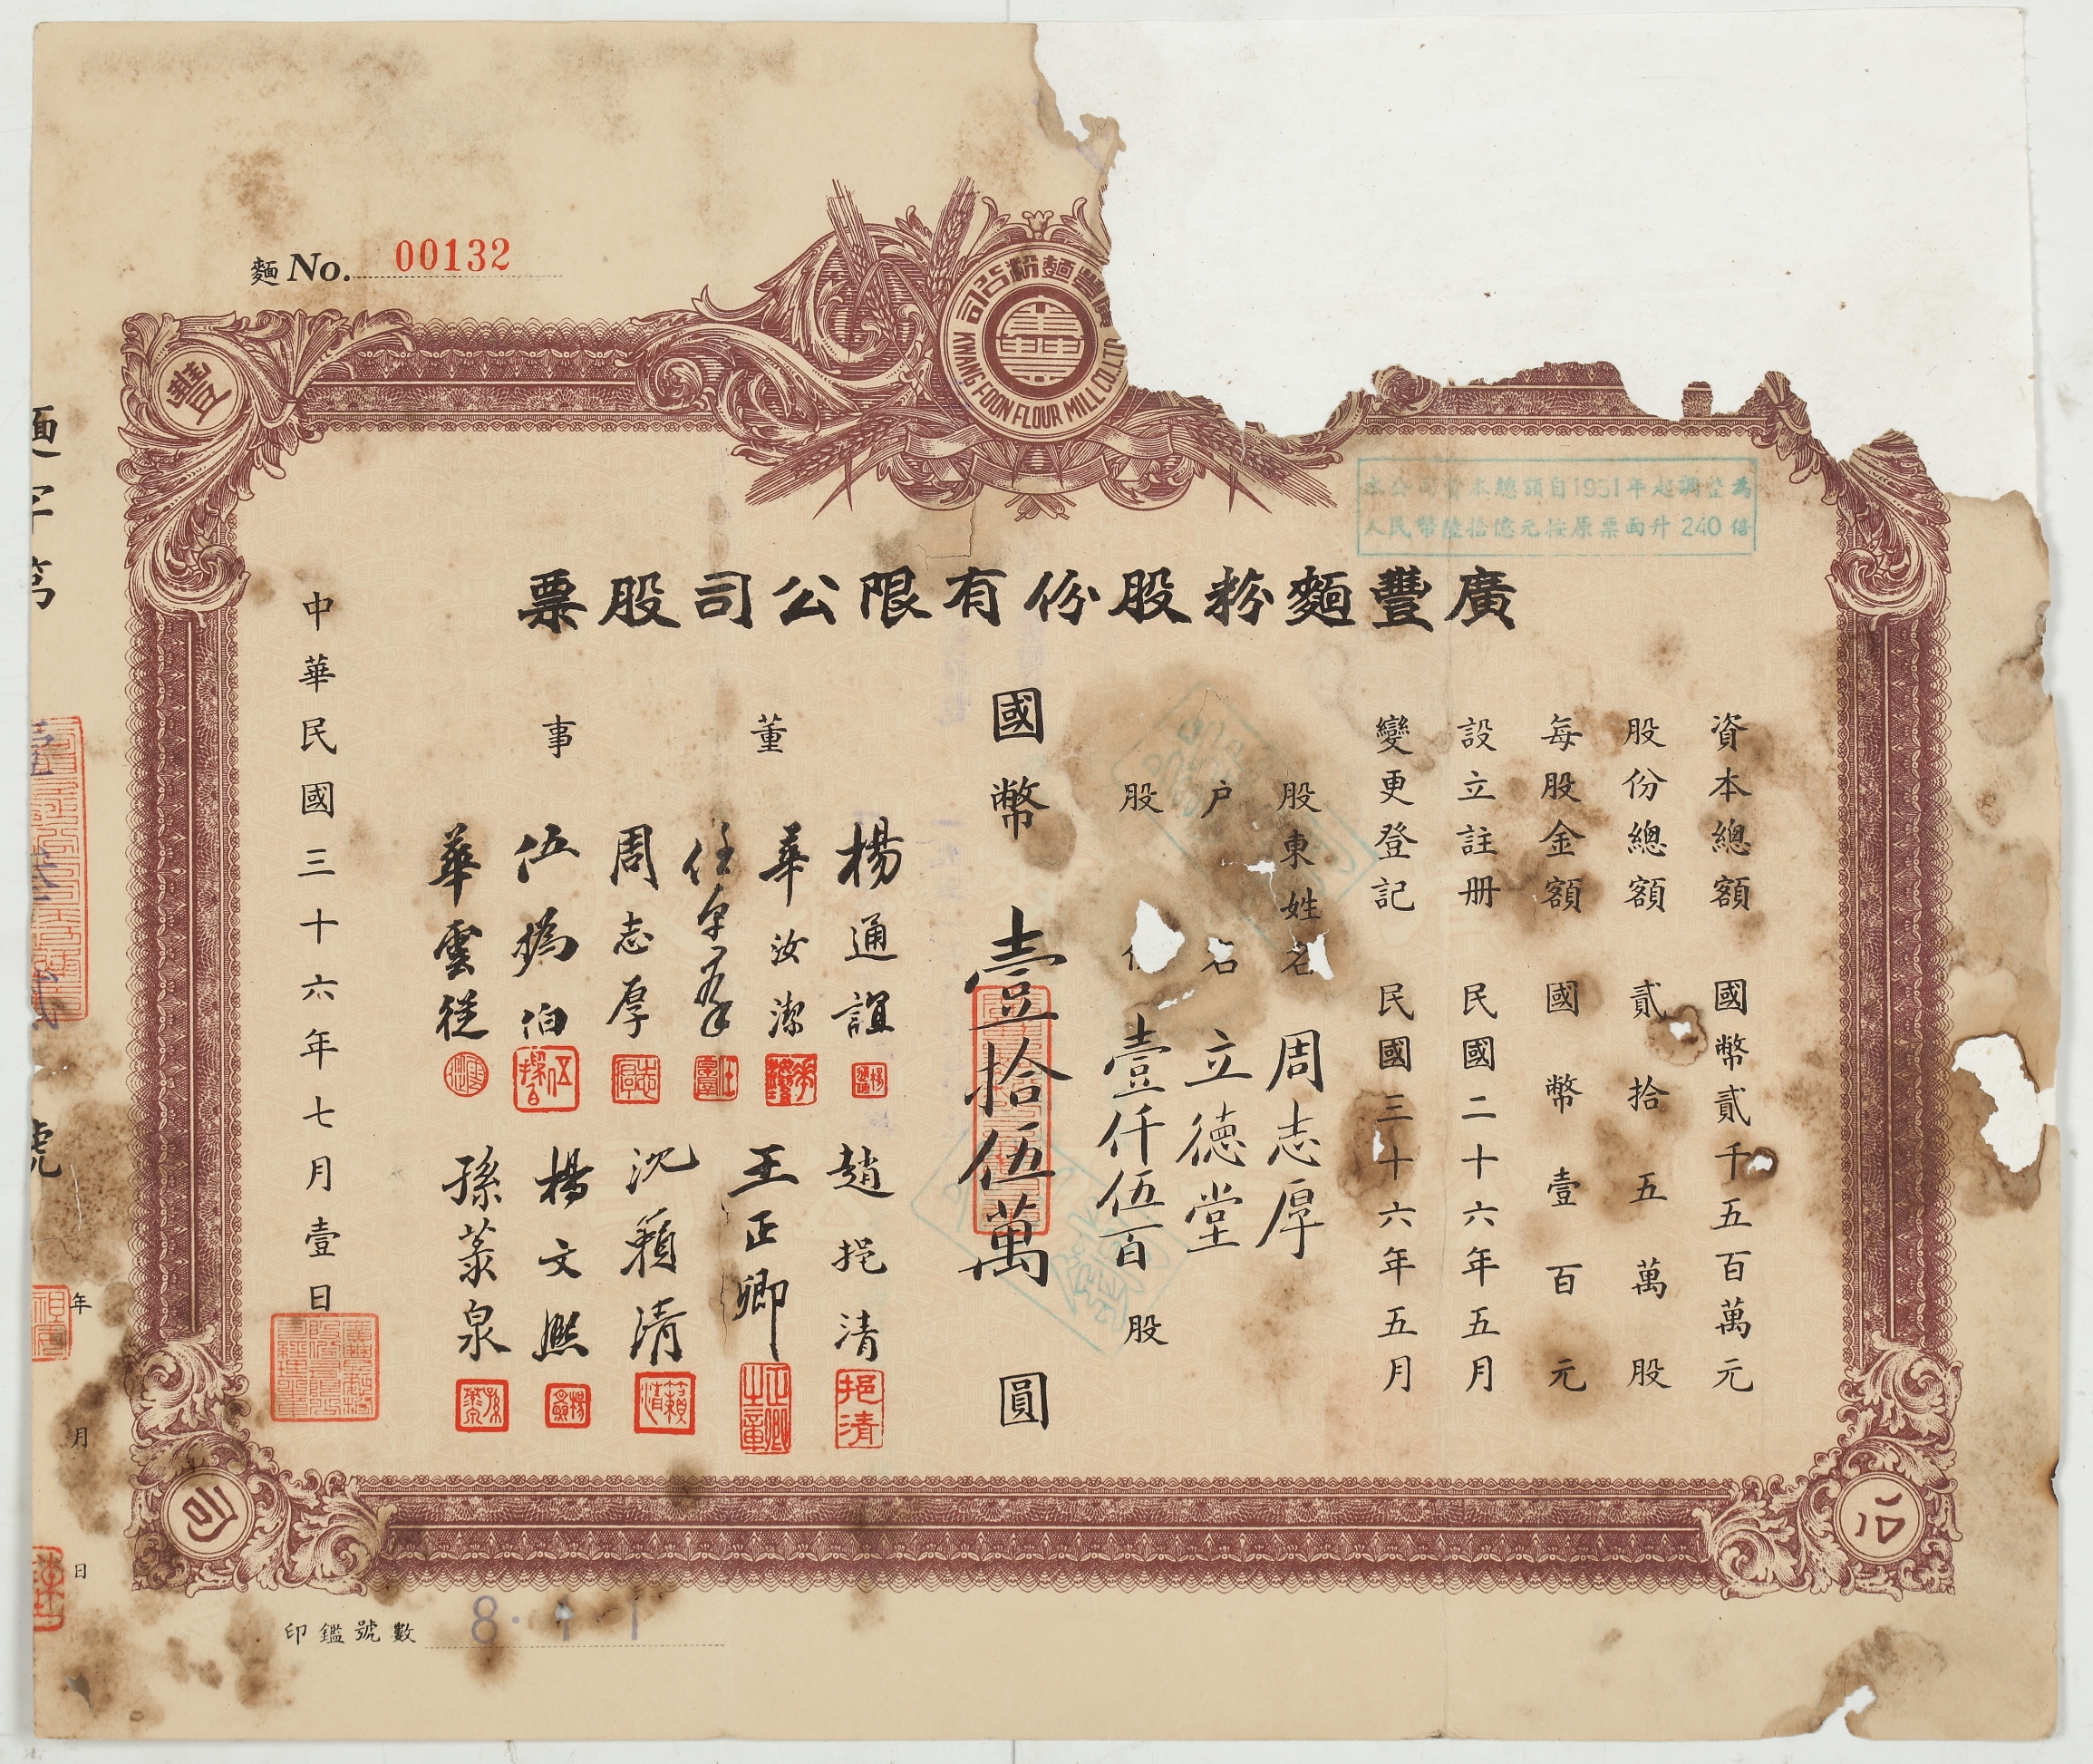 麵 No. 00132
豐麵粉公司
KWANG FOON FLOUR MILL CO. LTD
豐
本總額自1951年起調整為
人民幣陸拾億元按原票面升240倍
廣豐麵粉股份有限公司股票
資本總額 國幣貳千五百萬元
股份總額 貳拾五萬股
每股金額 國幣壹百元
設立註册 民國二十六年五月
變更登記 民國三十六年五月
股東姓名 周志厚
户名 立德堂
股 壹仟伍百股
國幣 壹拾伍萬圓
董事
楊通誼
華汝潔
周志厚
伍撝伯
華雲從
趙挹清
王正卿
沈籟清
楊文熙
孫蒃泉
挹清
中華民國三十六年七月壹日
司
公
字第
號
年
月
日
印鑑號數